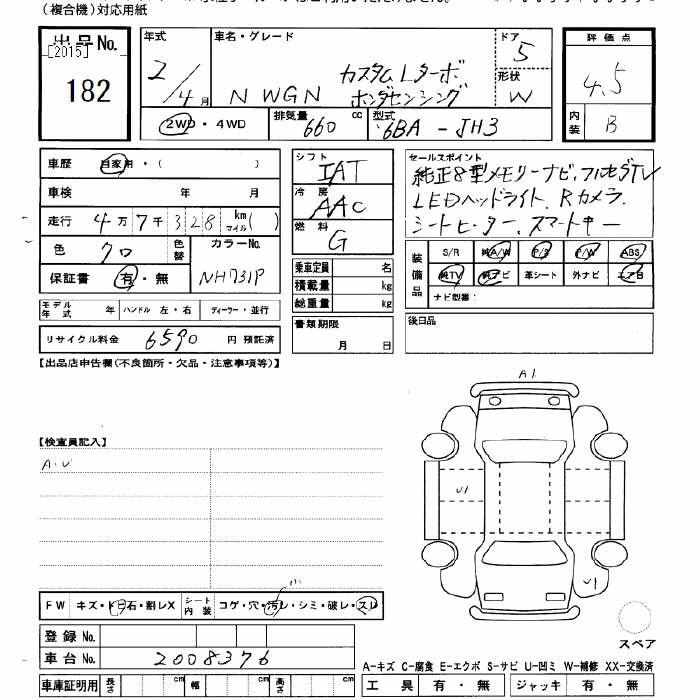 (複合機)対応用紙
出品No.
[2015]
182
年式
2/4月
車名・グレード
N WGN カスタムLターボ
ホンダセンシング
ドア
5
形状
W
評価点
4.5
内装
B
2WD・4WD
排気量
660 cc
型式
6BA-JH3
車歴 自家用・( )
車検 年 月
走行 4万7千328 km マイル( )
色 クロ 色替
カラーNo.
NH731P
保証書 有・無
モデル年式 年 ハンドル 左・右 ディーラー・並行
リサイクル料金 6590 円 預託済
シフト
IAT
冷房
AAC
燃料
G
乗車定員 名
積載量 kg
総重量 kg
書類期限
月 日
セールスポイント
純正8型メモリーナビ、フルセグTV
LEDヘッドライト、Rカメラ、
シートヒーター、スマートキー
装備品
S/R 純A/W P/S P/W ABS
純TV 純ナビ 革シート 外ナビ エアB
ナビ型番:
後日品
【出品店申告欄(不良箇所・欠品・注意事項等)】
【検査員記入】
A・U
A1
U1
U1
スペア
FW キズ・トビ石・割レX シート内装 コゲ・穴・汚レ・シミ・破レ・スレ
登録No.
車台No. 2008376
車庫証明用 長さ cm 幅 cm 高さ cm
A-キズ C-腐食 E-エクボ S-サビ U-凹ミ W-補修 XX-交換済
工具 有・無 ジャッキ 有・無